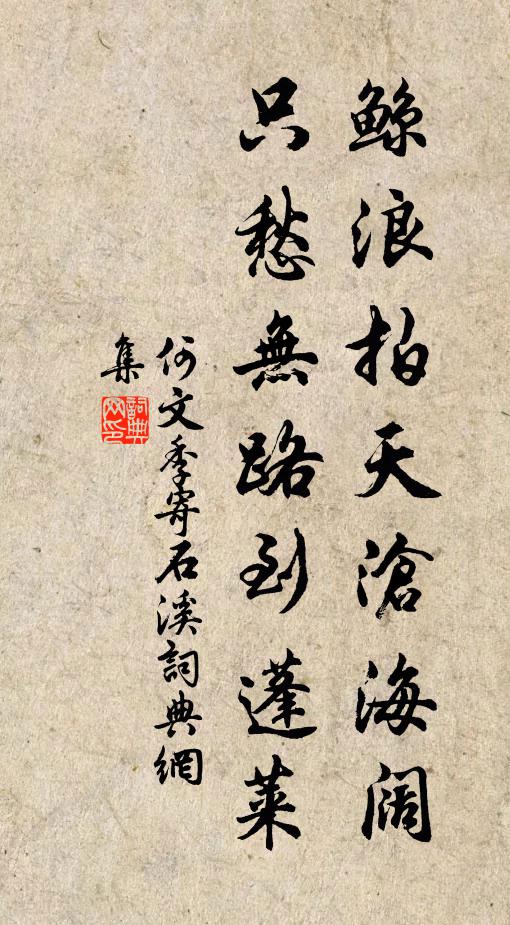 鲸浪拍天滄海阔
只愁無路到蓬莱
何文季寄石溪詞典網
集
詞典
网印